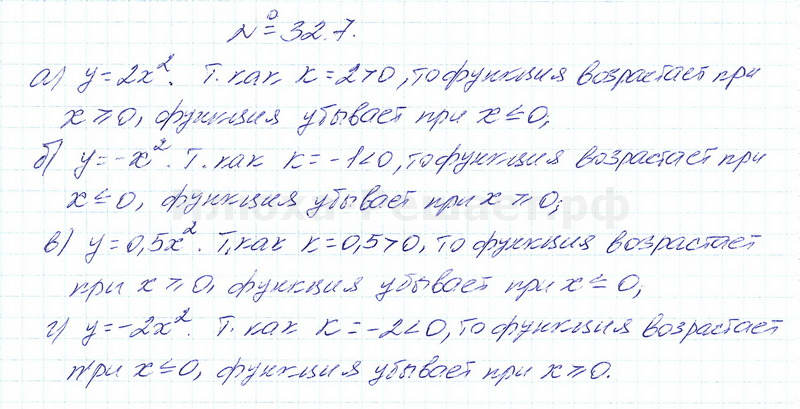 № 32.7.
а) y=2x². Т. как К=2>0, то функция возрастает при
x⩾0, функция убывает при x≤0;
б) y=-x². Т. как К=-1<0, то функция возрастает при
x≤0, функция убывает при x⩾0;
в) y=0,5x². Т. как К=0,5>0, то функция возрастает
при x⩾0, функция убывает при x≤0;
г) y=-2x². Т. как К=-2<0, то функция возрастает
при x≤0, функция убывает при x⩾0.